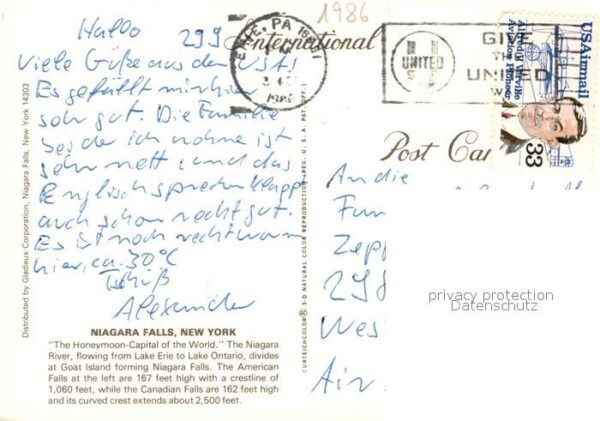 1986
Hallo
299
Viele Grüße aus den USA
Es gefällt mir hier
sehr gut. Die Familie
bei der ich wohne ist
sehr nett und das
Englisch sprechen klappt
auch schon recht gut.
Es ist noch recht warm
hier, ca. 30°C
Tschüß
Alexander
International
Post Car
ERIE, PA
1986
UNITED
GIVE
THE
UNITED
WAY
USAirmail
Alfred V. Verville
Aviation Pioneer
33
An die
Fam
Zepp
298
Wes
Air
privacy protection
Datenschutz
Distributed by Gladieux Corporation, Niagara Falls, New York 14303
CURTEICHCOLOR® 3-D NATURAL COLOR REPRODUCTION (REG. U. S. A. PAT. OFF.)
NIAGARA FALLS, NEW YORK
"The Honeymoon-Capital of the World." The Niagara
River, flowing from Lake Erie to Lake Ontario, divides
at Goat Island forming Niagara Falls. The American
Falls at the left are 167 feet high with a crestline of
1,060 feet, while the Canadian Falls are 162 feet high
and its curved crest extends about 2,500 feet.